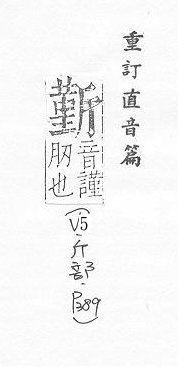 重訂直音篇
斳
音謹
肕也
(V5·斤部·P389)